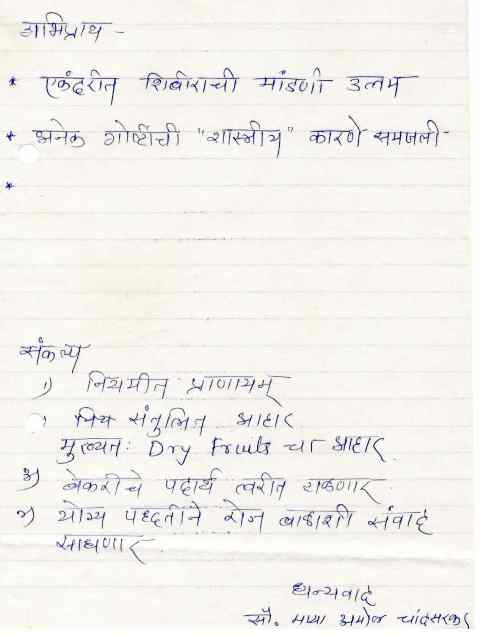 अभिप्राय -
* एकंदरीत शिबीराची मांडणी उत्तम
* अनेक गोष्टींची "शास्त्रीय" कारणे समजली -
*
संकल्प
१) नियमीत प्राणायम्
नित्य संतुलित आहार
मुख्यतः Dry Fruits चा आहार
३) बेकरीचे पदार्थ त्वरीत टाळणार
४) योग्य पध्दतीने रोज बाळाशी संवाद
साधणार
धन्यवाद
सौ. अमोल चांदसरकर